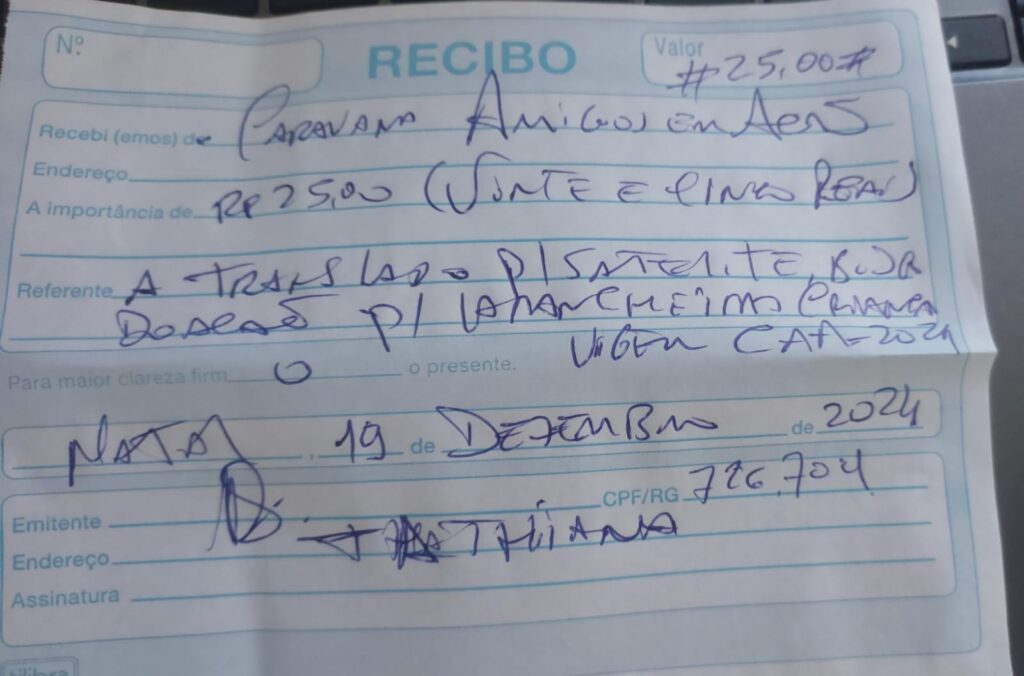 Nº
RECIBO
Valor #25,00#
Recebi (emos) de CARAVANA AMIGOS EM
Endereço
A importância de R$ 25,00 (VINTE E CINCO REAIS)
Referente A TRANSLADO P/ SATELITE,
P/ CRIANÇA
CAF-2024
Para maior clareza firm o o presente.
NATAL, 19 de DEZEMBRO de 2024
CPF/RG 726.704
Emitente
TATHIANA
Endereço
Assinatura